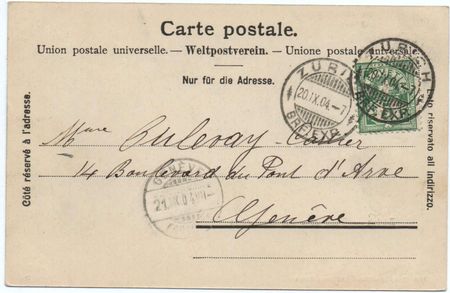 Carte postale.
Union postale universelle. — Weltpostverein. — Unione postale universale.
Nur für die Adresse.
Côté réservé à l'adresse.
Lato riservato all indirizzo.
ZÜRICH
20.IX.04.–7
BRF.EXP.
ZÜRICH
20.IX.04.–7
BRF.EXP.
Mme
14 Boulevard du Pont d'Arve
Genève
GENÈVE
21.IX.04